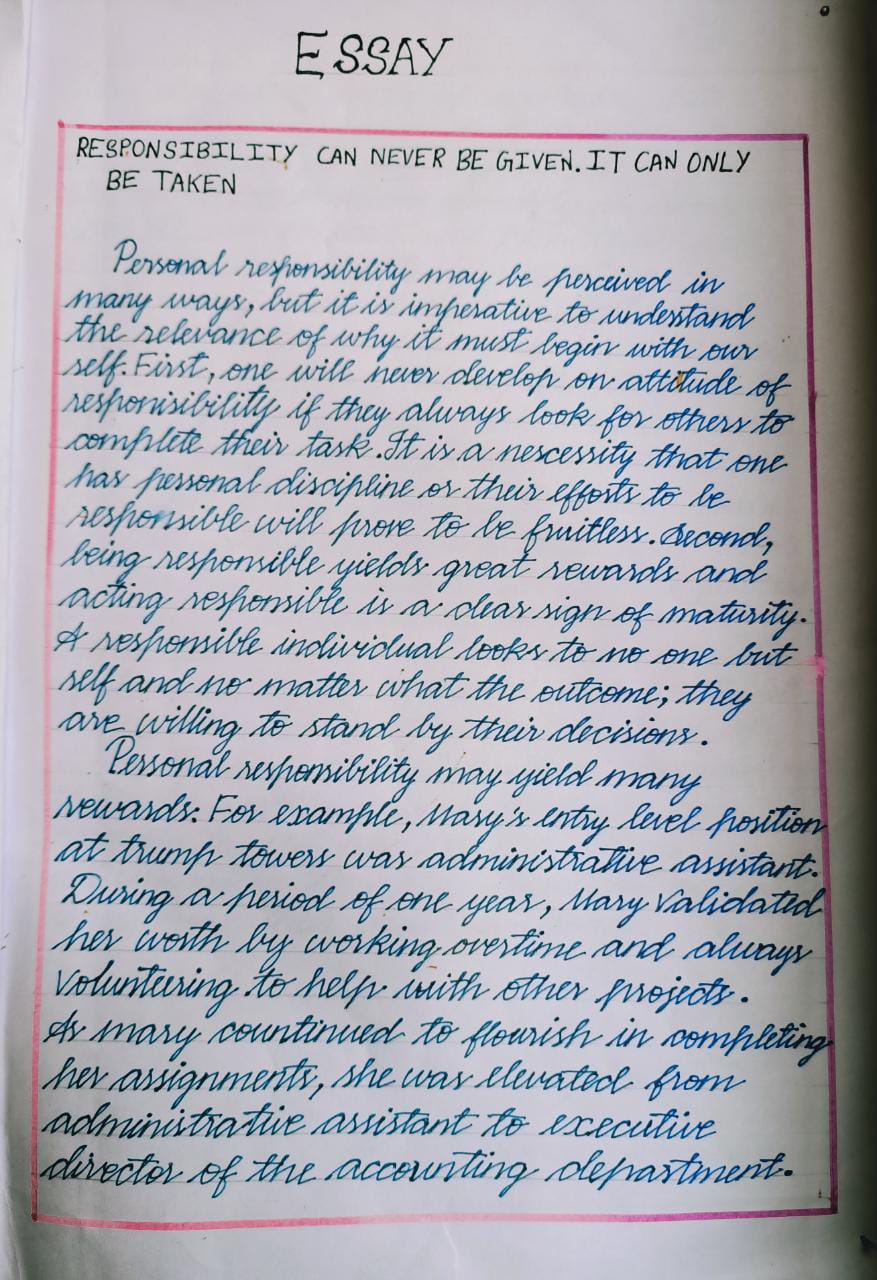 ESSAY
RESPONSIBILITY CAN NEVER BE GIVEN. IT CAN ONLY
BE TAKEN
Personal responsibility may be perceived in
many ways, but it is imperative to understand
the relevance of why it must begin with our
self. First, one will never develop on attitude of
responisibility if they always look for others to
complete their task. It is a nescessity that one
has personal discipline or their efforts to be
responsible will prove to be fruitless. Second,
being responsible yields great rewards and
acting responsible is a clear sign of maturity.
A responsible individual looks to no one but
self and no matter what the outcome; they
are willing to stand by their decisions.
Personal responsibility may yield many
rewards: For example, Mary's entry level position
at trump towers was administrative assistant.
During a period of one year, Mary Validated
her worth by working overtime and always
Volunteering to help with other projects.
As mary countinued to flourish in completing
her assignments, she was elevated from
administrative assistant to executive
director of the accounting department.